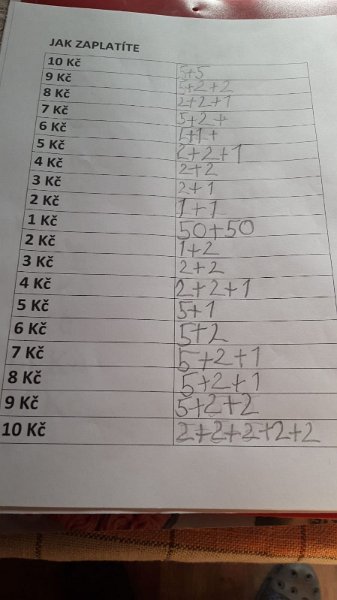 JAK ZAPLATÍTE
10 Kč 5+5
9 Kč 5+2+2
8 Kč 2+2+1
7 Kč 5+2+
6 Kč 1+1+
5 Kč 2+2+1
4 Kč 2+2
3 Kč 2+1
2 Kč 1+1
1 Kč 50+50
2 Kč 1+2
3 Kč 2+2
4 Kč 2+2+1
5 Kč 5+1
6 Kč 5+2
7 Kč 5+2+1
8 Kč 5+2+1
9 Kč 5+2+2
10 Kč 2+2+2+2+2